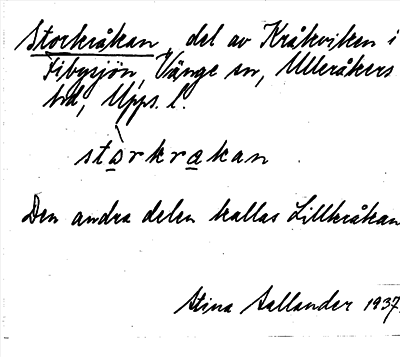 Storkråkan, del av Kråkviken i
Fibysjön, Vänge sn, Ulleråkers
hd, Upps. l.
stòrkrakan
Den andra delen kallas Lillkråkan
Stina Sallander 1937.